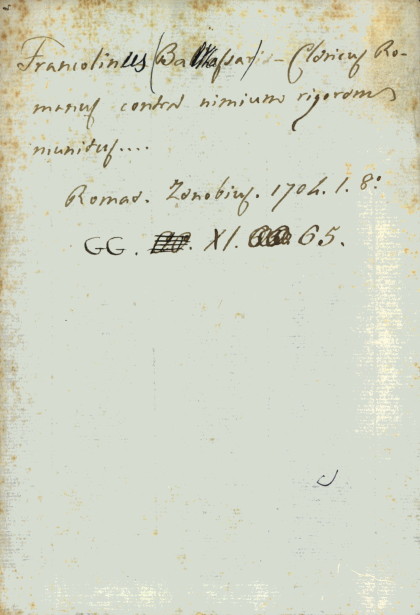 Francolinus (Balthassar) - Clericus Ro-
manus contra nimium rigorem
munitus....
Romae. Zenobius. 1704. 1. 8º
GG. XI. 65.